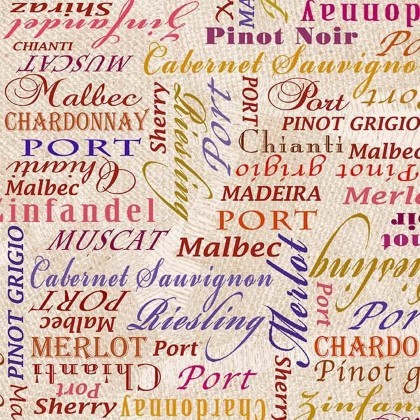 Shiraz
Zinfandel
MA
chardonnay
Pinot Noir
CHIANTI
MUSCAT
Cabernet Sauvigno
Malbec
CHARDONNAY
Sherry
Riesling
Port
PORT
Port
PINOT GRIGIO
PORT
Chianti
Malbec
Chianti
Malbec
pinot grigio
Pinot
MADEIRA
Merl
Zinfandel
PORT
MUSCAT
Malbec
PINOT GRIGIO
Cabernet Sauvignon
Merlot
Riesling
PORT
Port
Malbec
Riesling
Por
MERLOT
Port
CHARDO
Chianti
Port
Port
Sherry
Pinot g
Ma
Sherry
Chardonnay
Zinfan